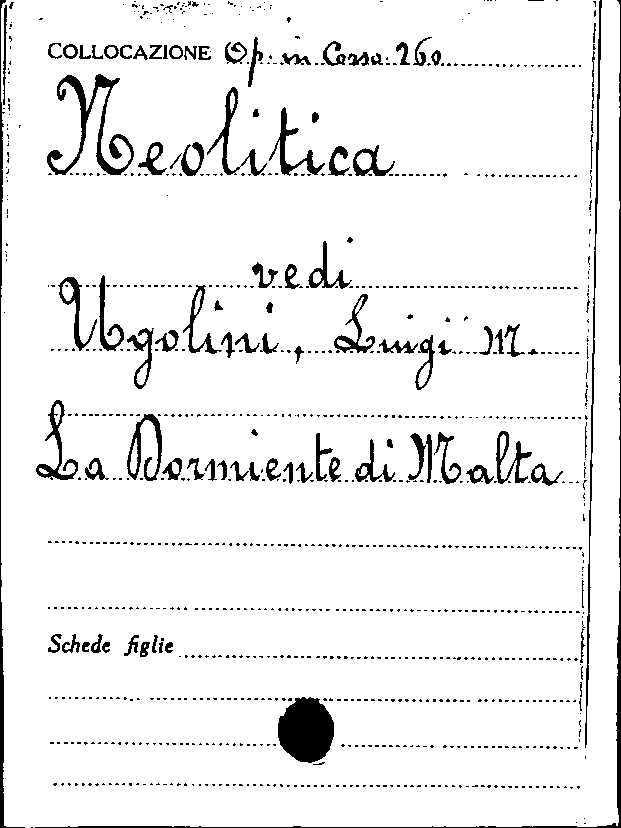 COLLOCAZIONE Op. in Corso. 260
Neolitica
vedi
Ugolini, Luigi M.
La Dormiente di Malta
Schede figlie